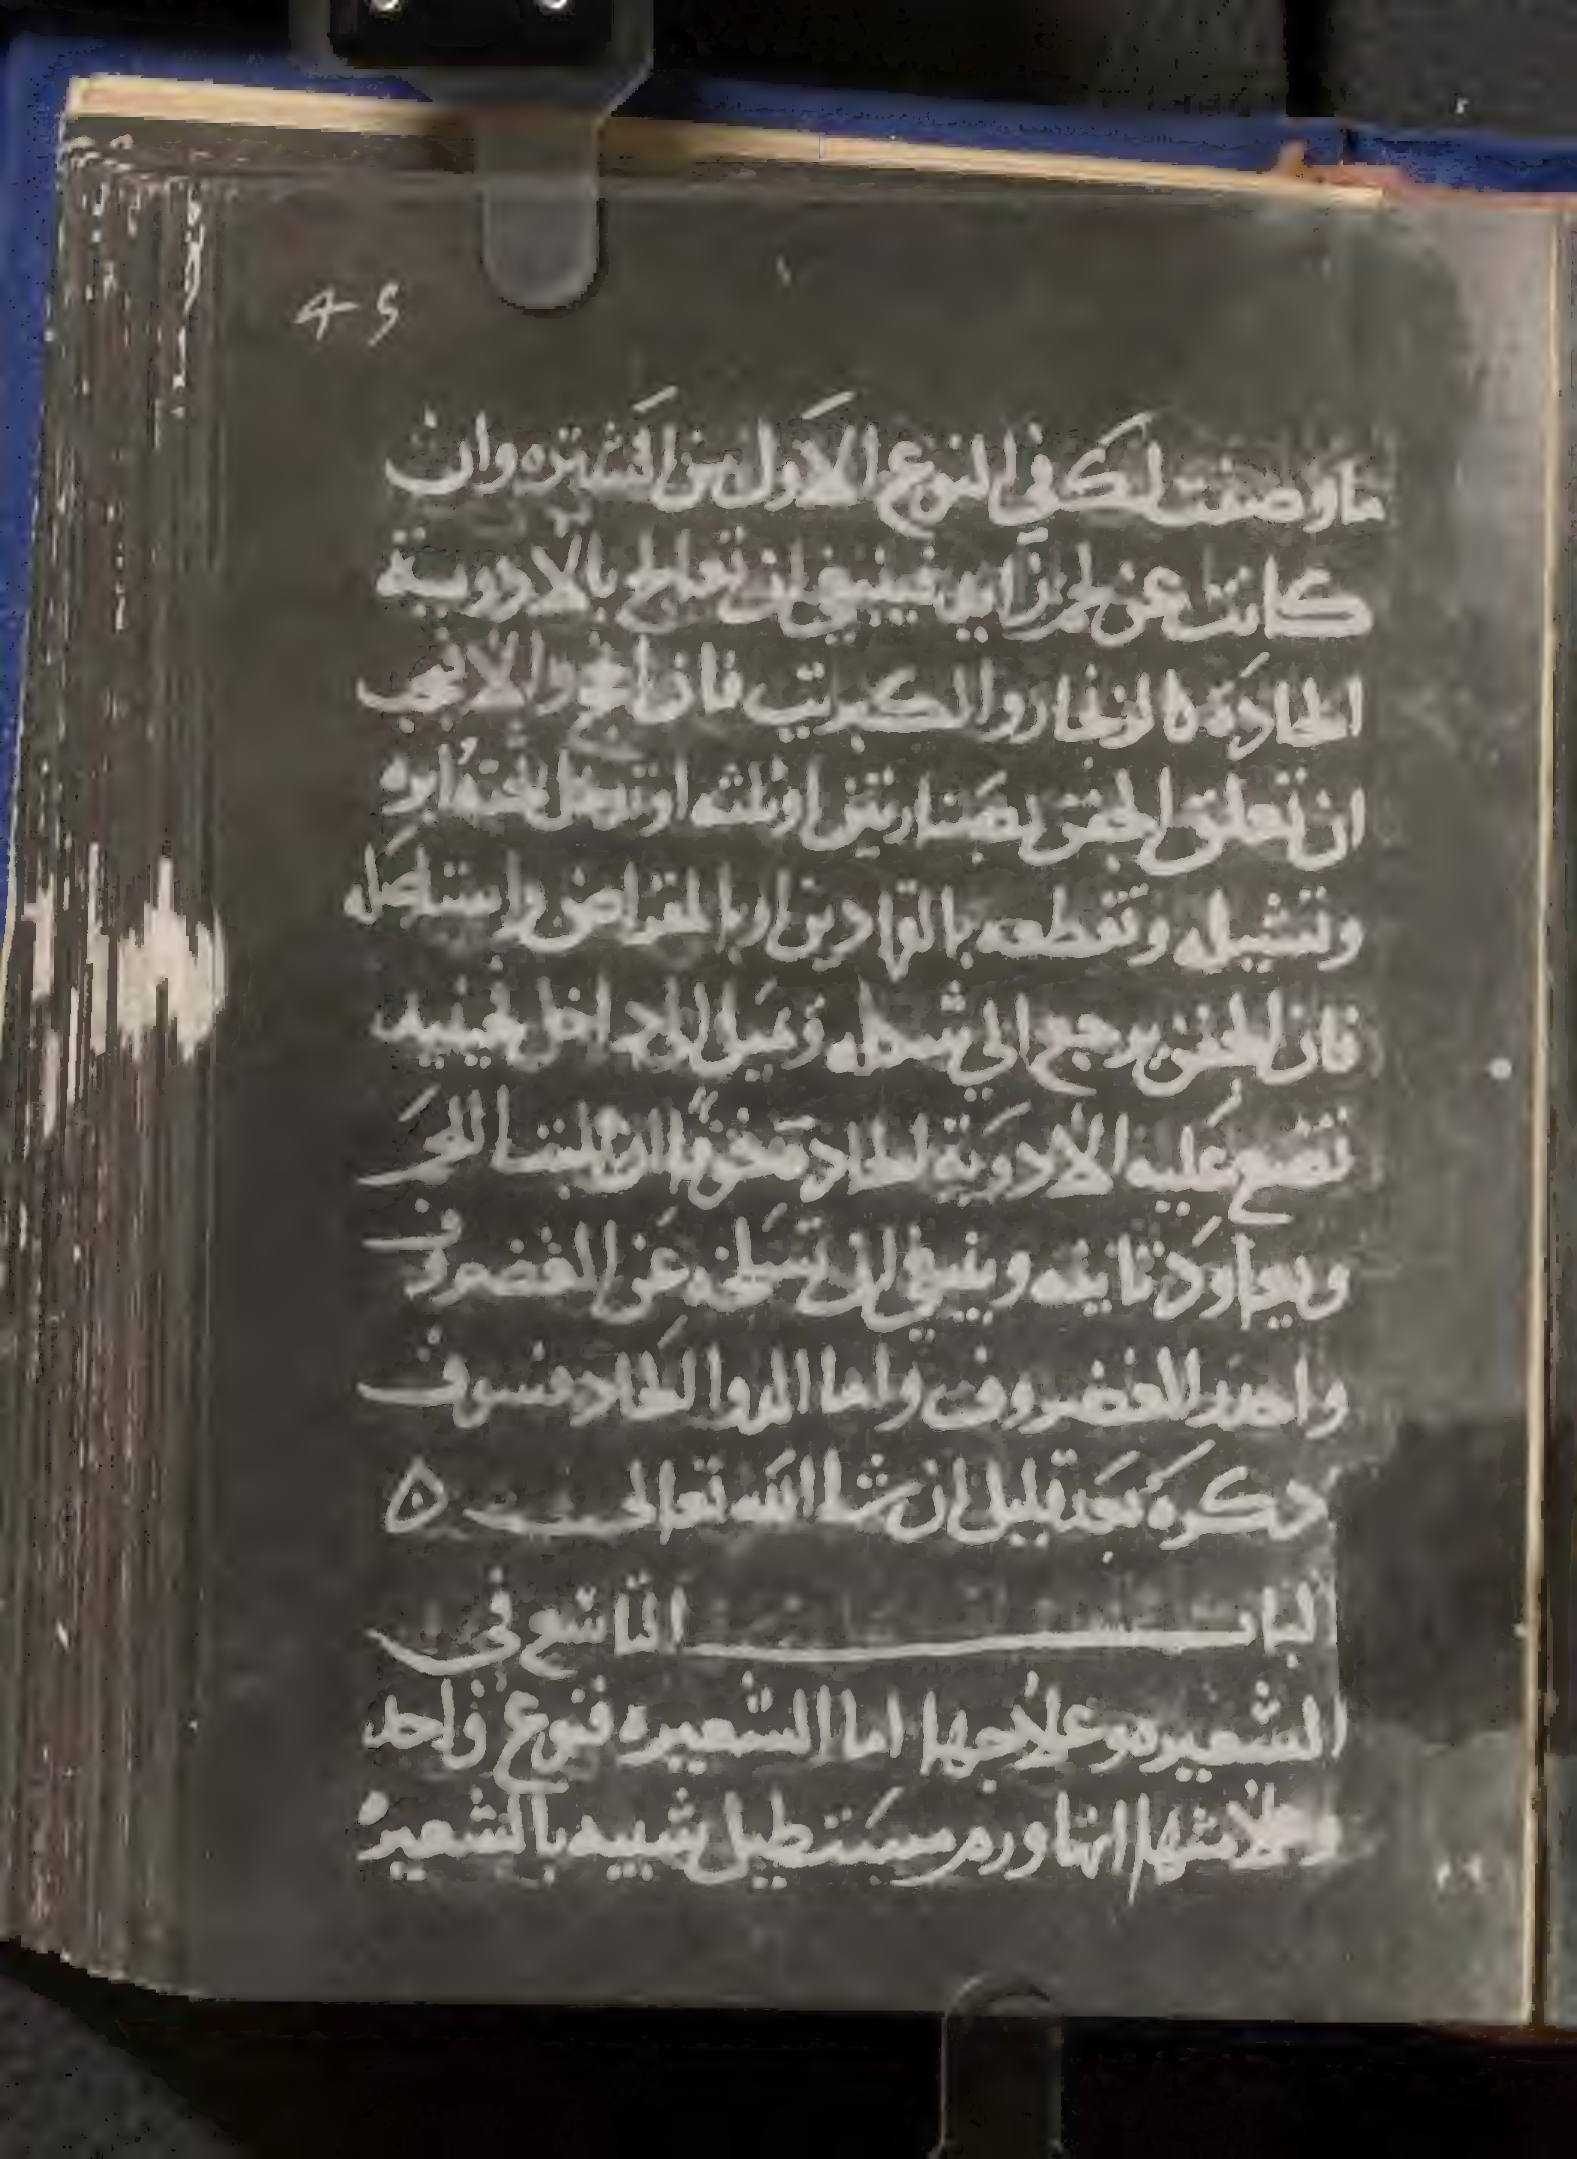 49
ما وصفت لك في النوع الاول من الشتره وان
كانت عن لحم زايد فينبغي ان تعالج بالادوية
الحادة كالزنجار والكبريت فان انجح والا فيجب
ان تعلق الجفن بصنارتين او ثلثه او تدخل تحته ابره
وتشيله وتقطعه بالقادين او بالمقراض واستاصله
فان الجفن يرجع الي شكله وتميل الي داخل فحينيد
تضع عليه الادوية الحادة ليلا اللحم
ويعاود ثانيه وينبغي ان تسلخه عن الغضروف
واحدر الغضروف واما الدوا الحاد فسوف
دكره بعد قليل ان شا الله تعالى ه
الباب التاسع في
الشعيره وعلاجها اما الشعيره فنوع واحد
وعلامتها انها ورم مستطيل شبيه بالشعيره